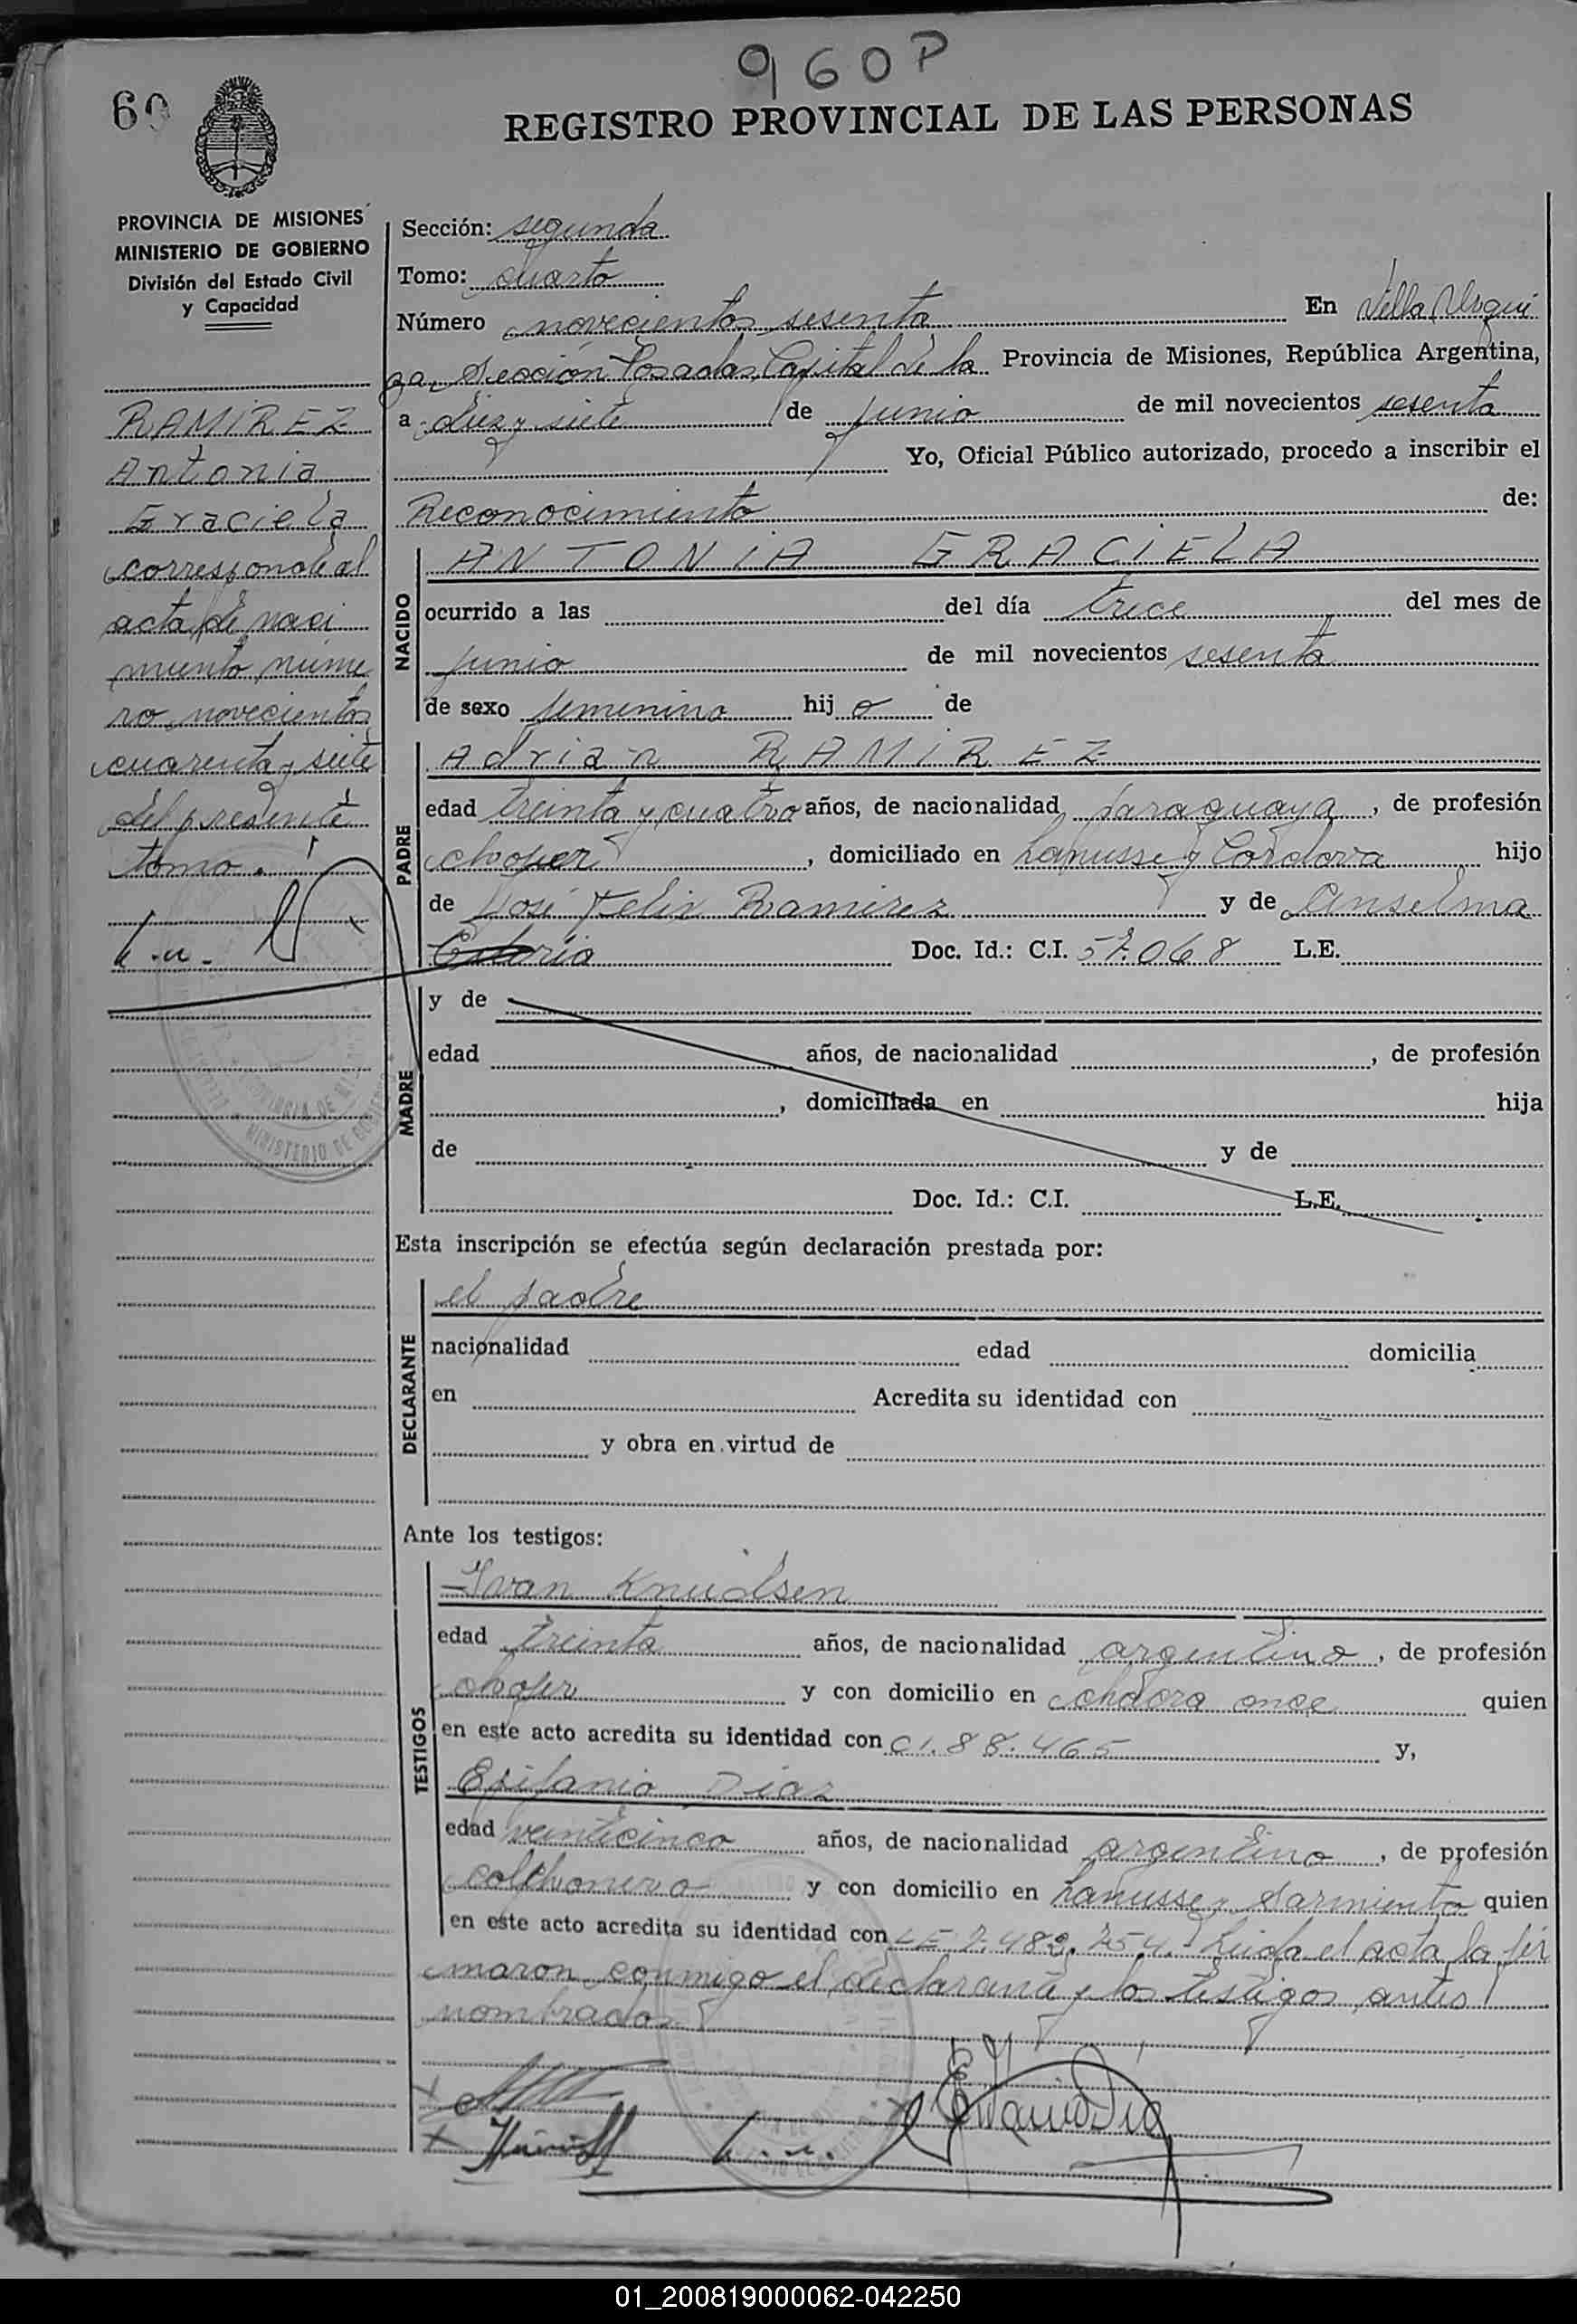 960P
60
REGISTRO PROVINCIAL DE LAS PERSONAS
PROVINCIA DE MISIONES
MINISTERIO DE GOBIERNO
División del Estado Civil
y Capacidad
RAMIREZ
Antonia
Graciela
corresponde al
acta de naci
miento núme
ro novecientos
cuarenta y siete
del presente
tomo.
Sección: segunda
Tomo: cuarto
Número novecientos sesenta En Villa Urqui
za, Sección Posadas, Capital de la Provincia de Misiones, República Argentina,
a diez y siete de junio de mil novecientos sesenta
Yo, Oficial Público autorizado, procedo a inscribir el
Reconocimiento de:
NACIDO
ANTONIA GRACIELA
ocurrido a las del día trece del mes de
junio de mil novecientos sesenta
de sexo femenino hij a de
PADRE
Adrian RAMIREZ
edad treinta y cuatro años, de nacionalidad paraguaya, de profesión
chofer, domiciliado en Lanusse y Cordova hijo
de José Felix Ramirez y de Anselma
Doc. Id.: C.I. 57.068 L.E.
MADRE
y de
edad años, de nacionalidad , de profesión
, domiciliada en hija
de y de
Doc. Id.: C.I. L.E.
Esta inscripción se efectúa según declaración prestada por:
DECLARANTE
el padre
nacionalidad edad domicilia
en Acredita su identidad con
y obra en virtud de
Ante los testigos:
TESTIGOS
Ivan Knudsen
edad treinta años, de nacionalidad argentino, de profesión
chofer y con domicilio en chacra once quien
en este acto acredita su identidad con CI. 88.465 y,
Epifanio Diaz
edad veinticinco años, de nacionalidad argentino, de profesión
colchonero y con domicilio en Lanusse y Sarmiento quien
en este acto acredita su identidad con LE 7.482.754. Leída el acta la fir
maron conmigo el declarante y los testigos antes
nombrados.
01_200819000062-042250